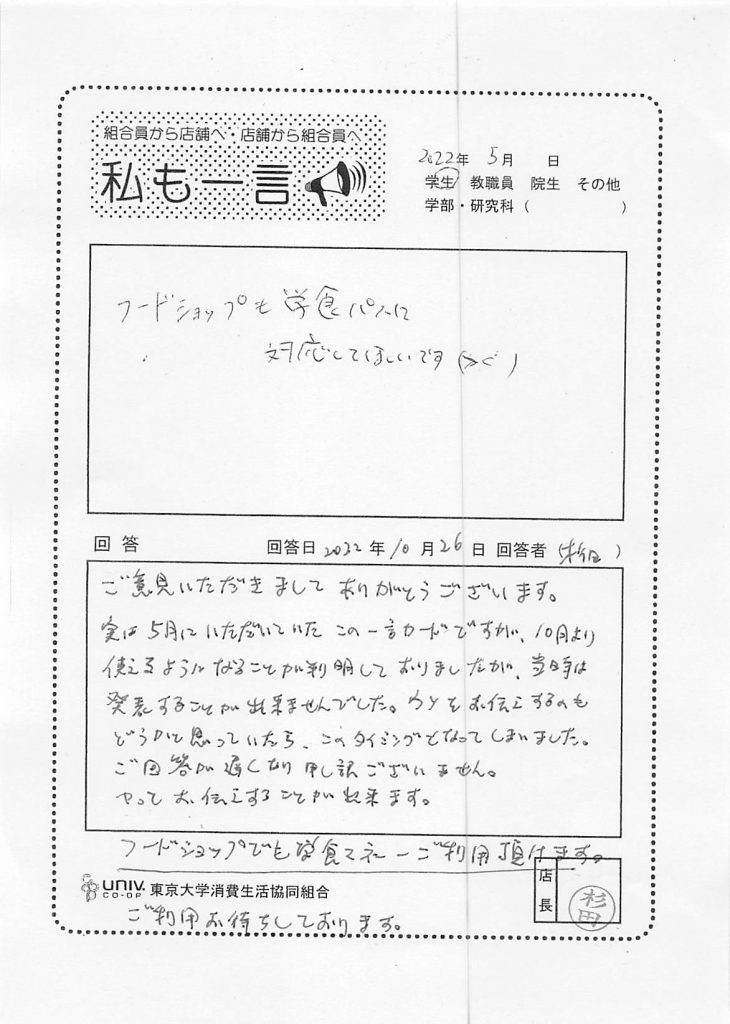 組合員から店舗へ・店舗から組合員へ
私も一言
2022年 5月 日
学生 教職員 院生 その他
学部・研究科（ ）
フードショップも学食パスに
対応してほしいです
回答 回答日 2022年 10月 26日 回答者（杉田）
ご意見いただきまして ありがとうございます。
実は 5月に いただいていた この一言カードですが、10月より
使えるようになることが判明しておりましたが、当時は
発表することが出来ませんでした。ウソをお伝えするのも
どうかと思っていたら、このタイミングとなってしまいました。
ご回答が遅くなり申し訳ございません。
やっと お伝えすることが出来ます。
フードショップでも学食マネーご利用頂けます。
UNIV. CO-OP 東京大学消費生活協同組合
店長 杉田
ご利用お待ちしております。